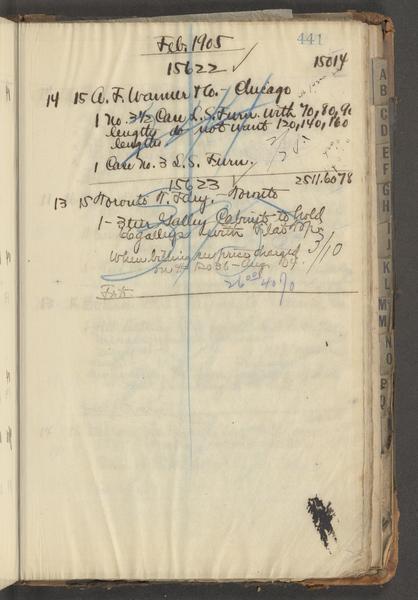 Feb. 1905 441
15622 ✓ 15014
14 15 A. F. Wanner & Co. - Chicago
1 No. 3½ Case L. S. Furn. with 70, 80, 90
lengths do not want 120, 140, 160
lengths
1 Case No. 3 L. S. Furn.
15623 ✓ 2511.6078
13 15 Toronto T. Fdry. Toronto
1 - 3 tier Galley Cabinets to hold
galleys with Flat Tops
When billing see price charged 3/10
on
26 40%
A
B
C
D
E
F
G
H
I
J
K
L
M
M
N
O
P
Q